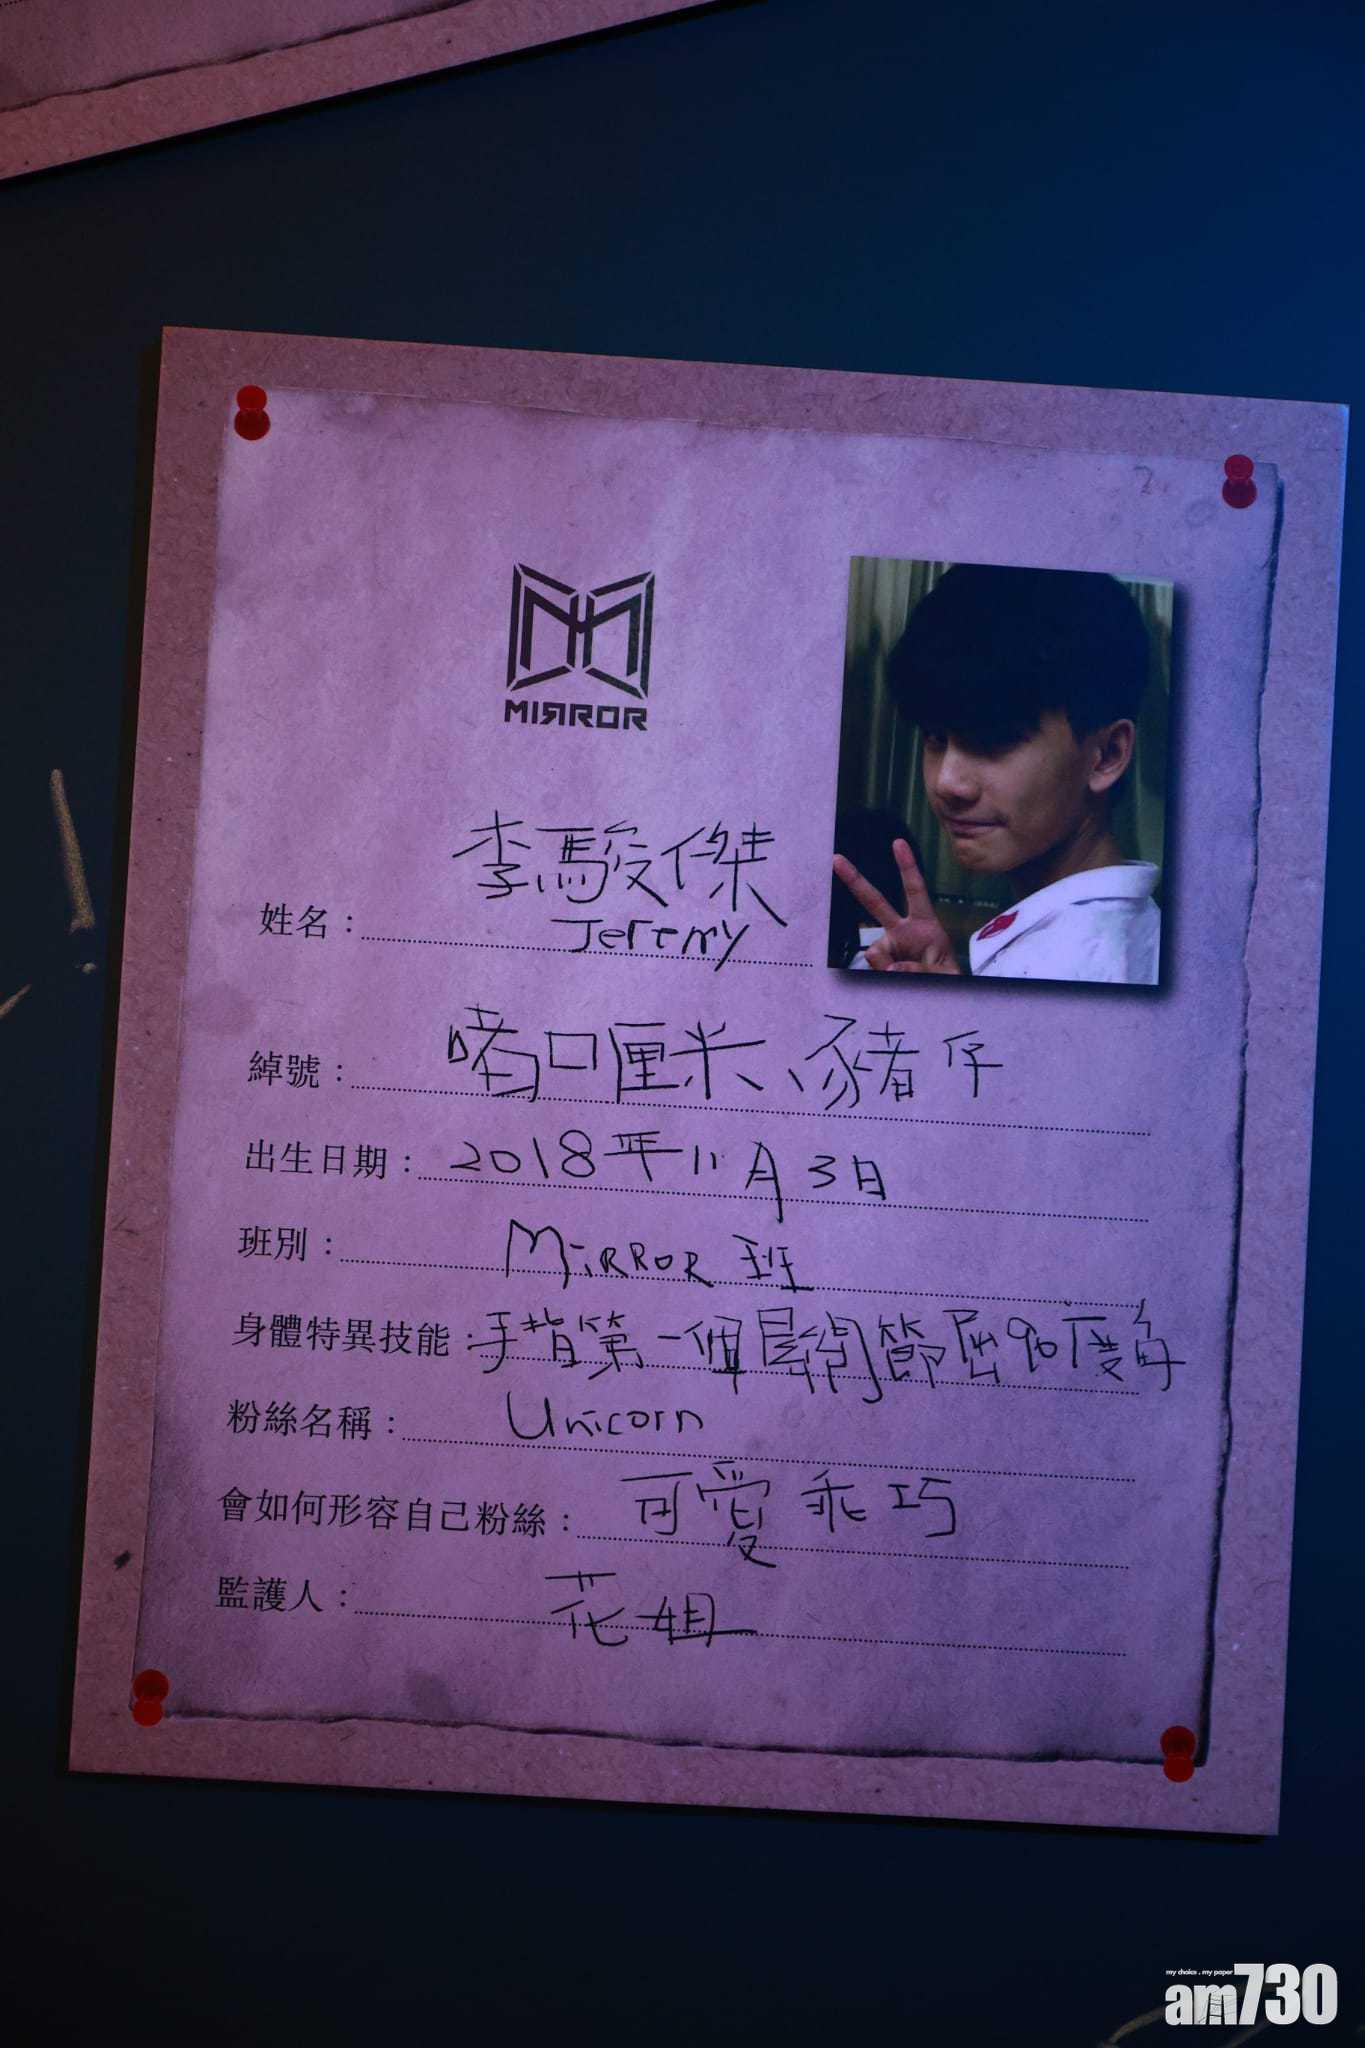 MIRROR
姓名：李駿傑
Jeremy
綽號：啫口厘米、豬仔
出生日期：2018年11月3日
班別：MiRROR 班
身體特異技能：手背第一個關節屈90度角
粉絲名稱：Unicorn
會如何形容自己粉絲：可愛乖巧
監護人：花姐
my choice . my paper
am730